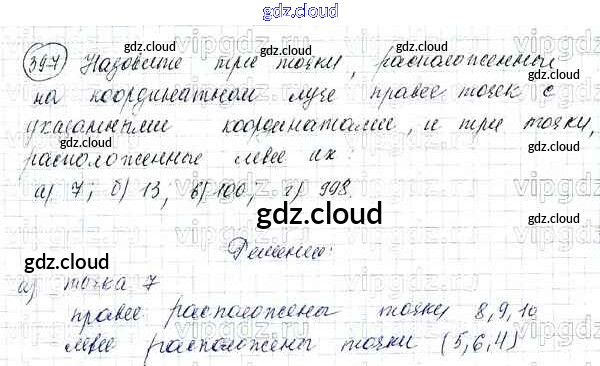 gdz.cloud
397 Назовите три точки, расположенные
на координатном луче правее точек с
указанными координатами, и три точки,
расположенные левее их:
а) 7; б) 13, в) 100, г) 998.
gdz.cloud
Решение:
а) точка 7
правее расположены точки 8, 9, 10
левее расположены точки (5, 6, 4)